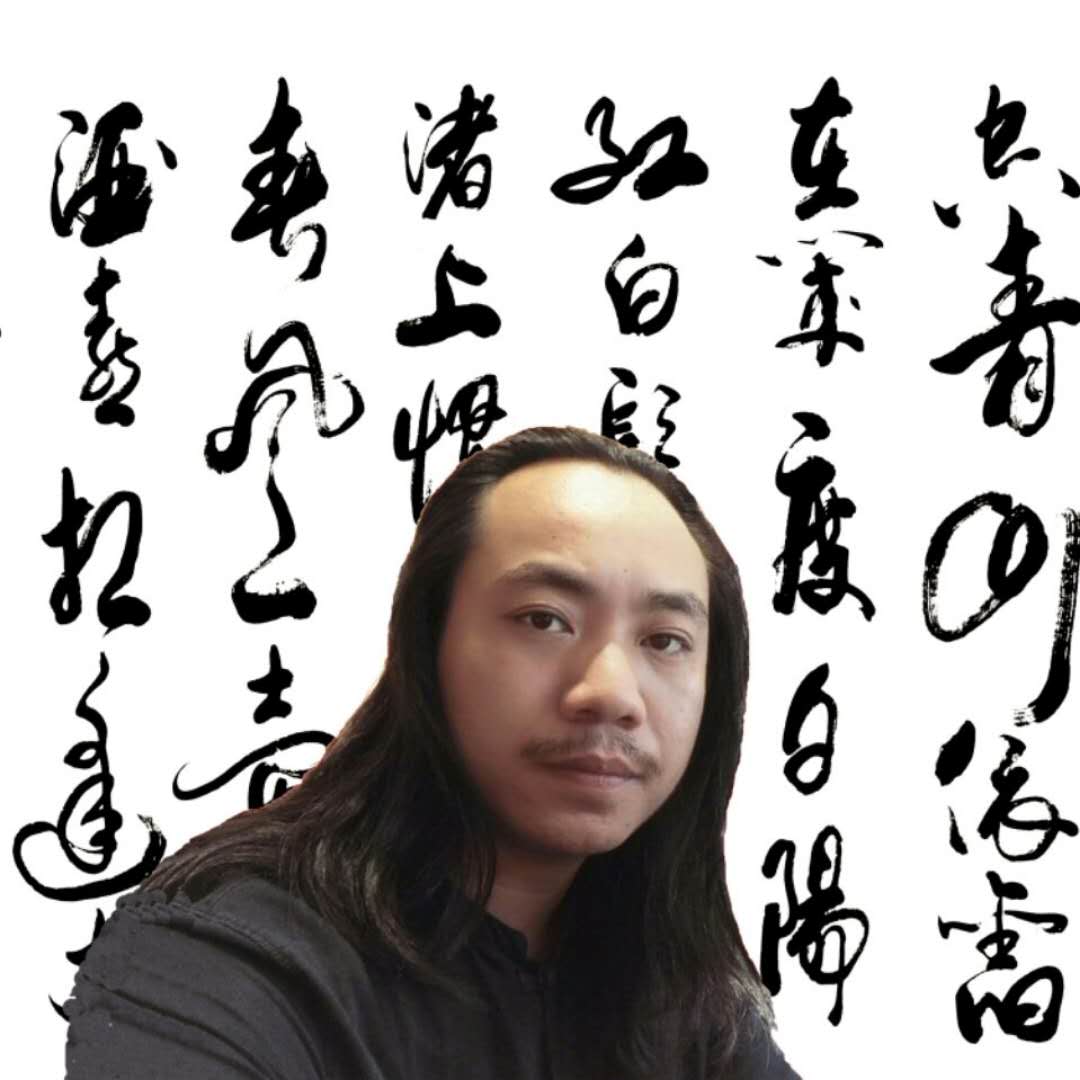 空青山依舊
在幾度夕陽
紅白髮
渚上慣
春風一壺
酒喜相逢